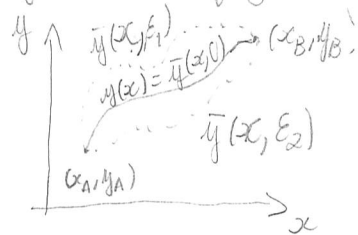 y
ȳ(x, ε₁)
(x_B, y_B)
y(x) = ȳ(x, 0)
ȳ(x, ε₂)
(x_A, y_A)
x